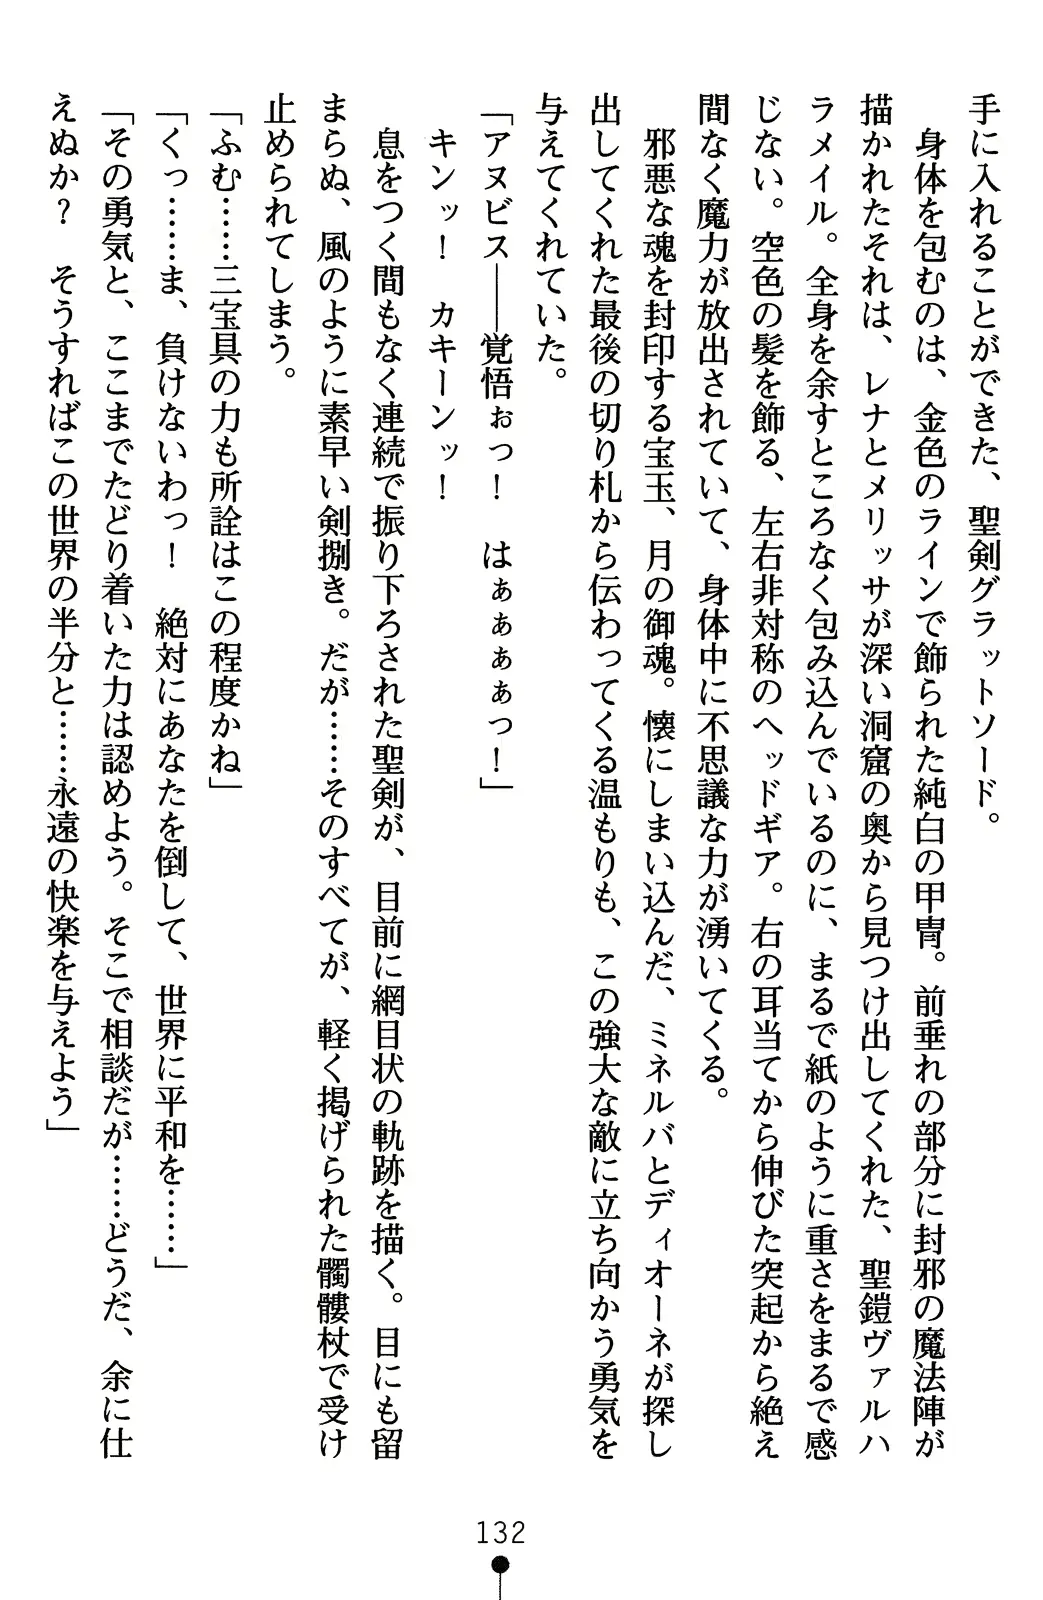 手に入れることができた、聖剣グラットソード。
　身体を包むのは、金色のラインで飾られた純白の甲冑。前垂れの部分に封邪の魔法陣が
描かれたそれは、レナとメリッサが深い洞窟の奥から見つけ出してくれた、聖鎧ヴァルハ
ラメイル。全身を余すところなく包み込んでいるのに、まるで紙のように重さをまるで感
じない。空色の髪を飾る、左右非対称のヘッドギア。右の耳当てから伸びた突起から絶え
間なく魔力が放出されていて、身体中に不思議な力が湧いてくる。
　邪悪な魂を封印する宝玉、月の御魂。懐にしまい込んだ、ミネルバとディオーネが探し
出してくれた最後の切り札から伝わってくる温もりも、この強大な敵に立ち向かう勇気を
与えてくれていた。
「アヌビス――覚悟ぉっ！　はぁぁぁぁっ！」
　キンッ！　カキーンッ！
　息をつく間もなく連続で振り下ろされた聖剣が、目前に網目状の軌跡を描く。目にも留
まらぬ、風のように素早い剣捌き。だが……そのすべてが、軽く掲げられた髑髏杖で受け
止められてしまう。
「ふむ……三宝具の力も所詮はこの程度かね」
「くっ……ま、負けないわっ！　絶対にあなたを倒して、世界に平和を……」
「その勇気と、ここまでたどり着いた力は認めよう。そこで相談だが……どうだ、余に仕
えぬか？　そうすればこの世界の半分と……永遠の快楽を与えよう」
132